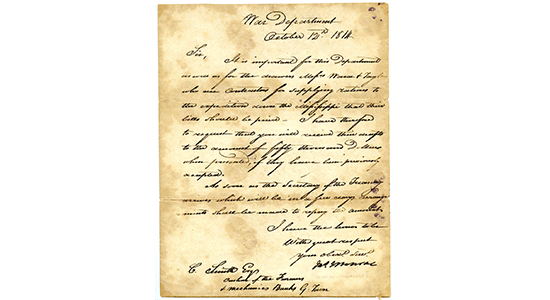 War Department
October 12th 1814.
Sir,
It is important for this Department
as well as for the drawers Messrs Ward &
who are Contractors for supplying rations to
the expedition down the Mississippi that their
bills should be paid – I have therefore
to request that you will receive their drafts
to the amount of fifty thousand Dollars
when presented, if they have been previously
accepted.
As soon as the Secretary of the Treasury
arrives which will be in a few days arrange
ments shall be made to repay the amount.
I have the honor to be
With great respect
your obed. Serv.
Jas Monroe
C Smith Esq
Cashier of the Farmers
& mechanics Bank of